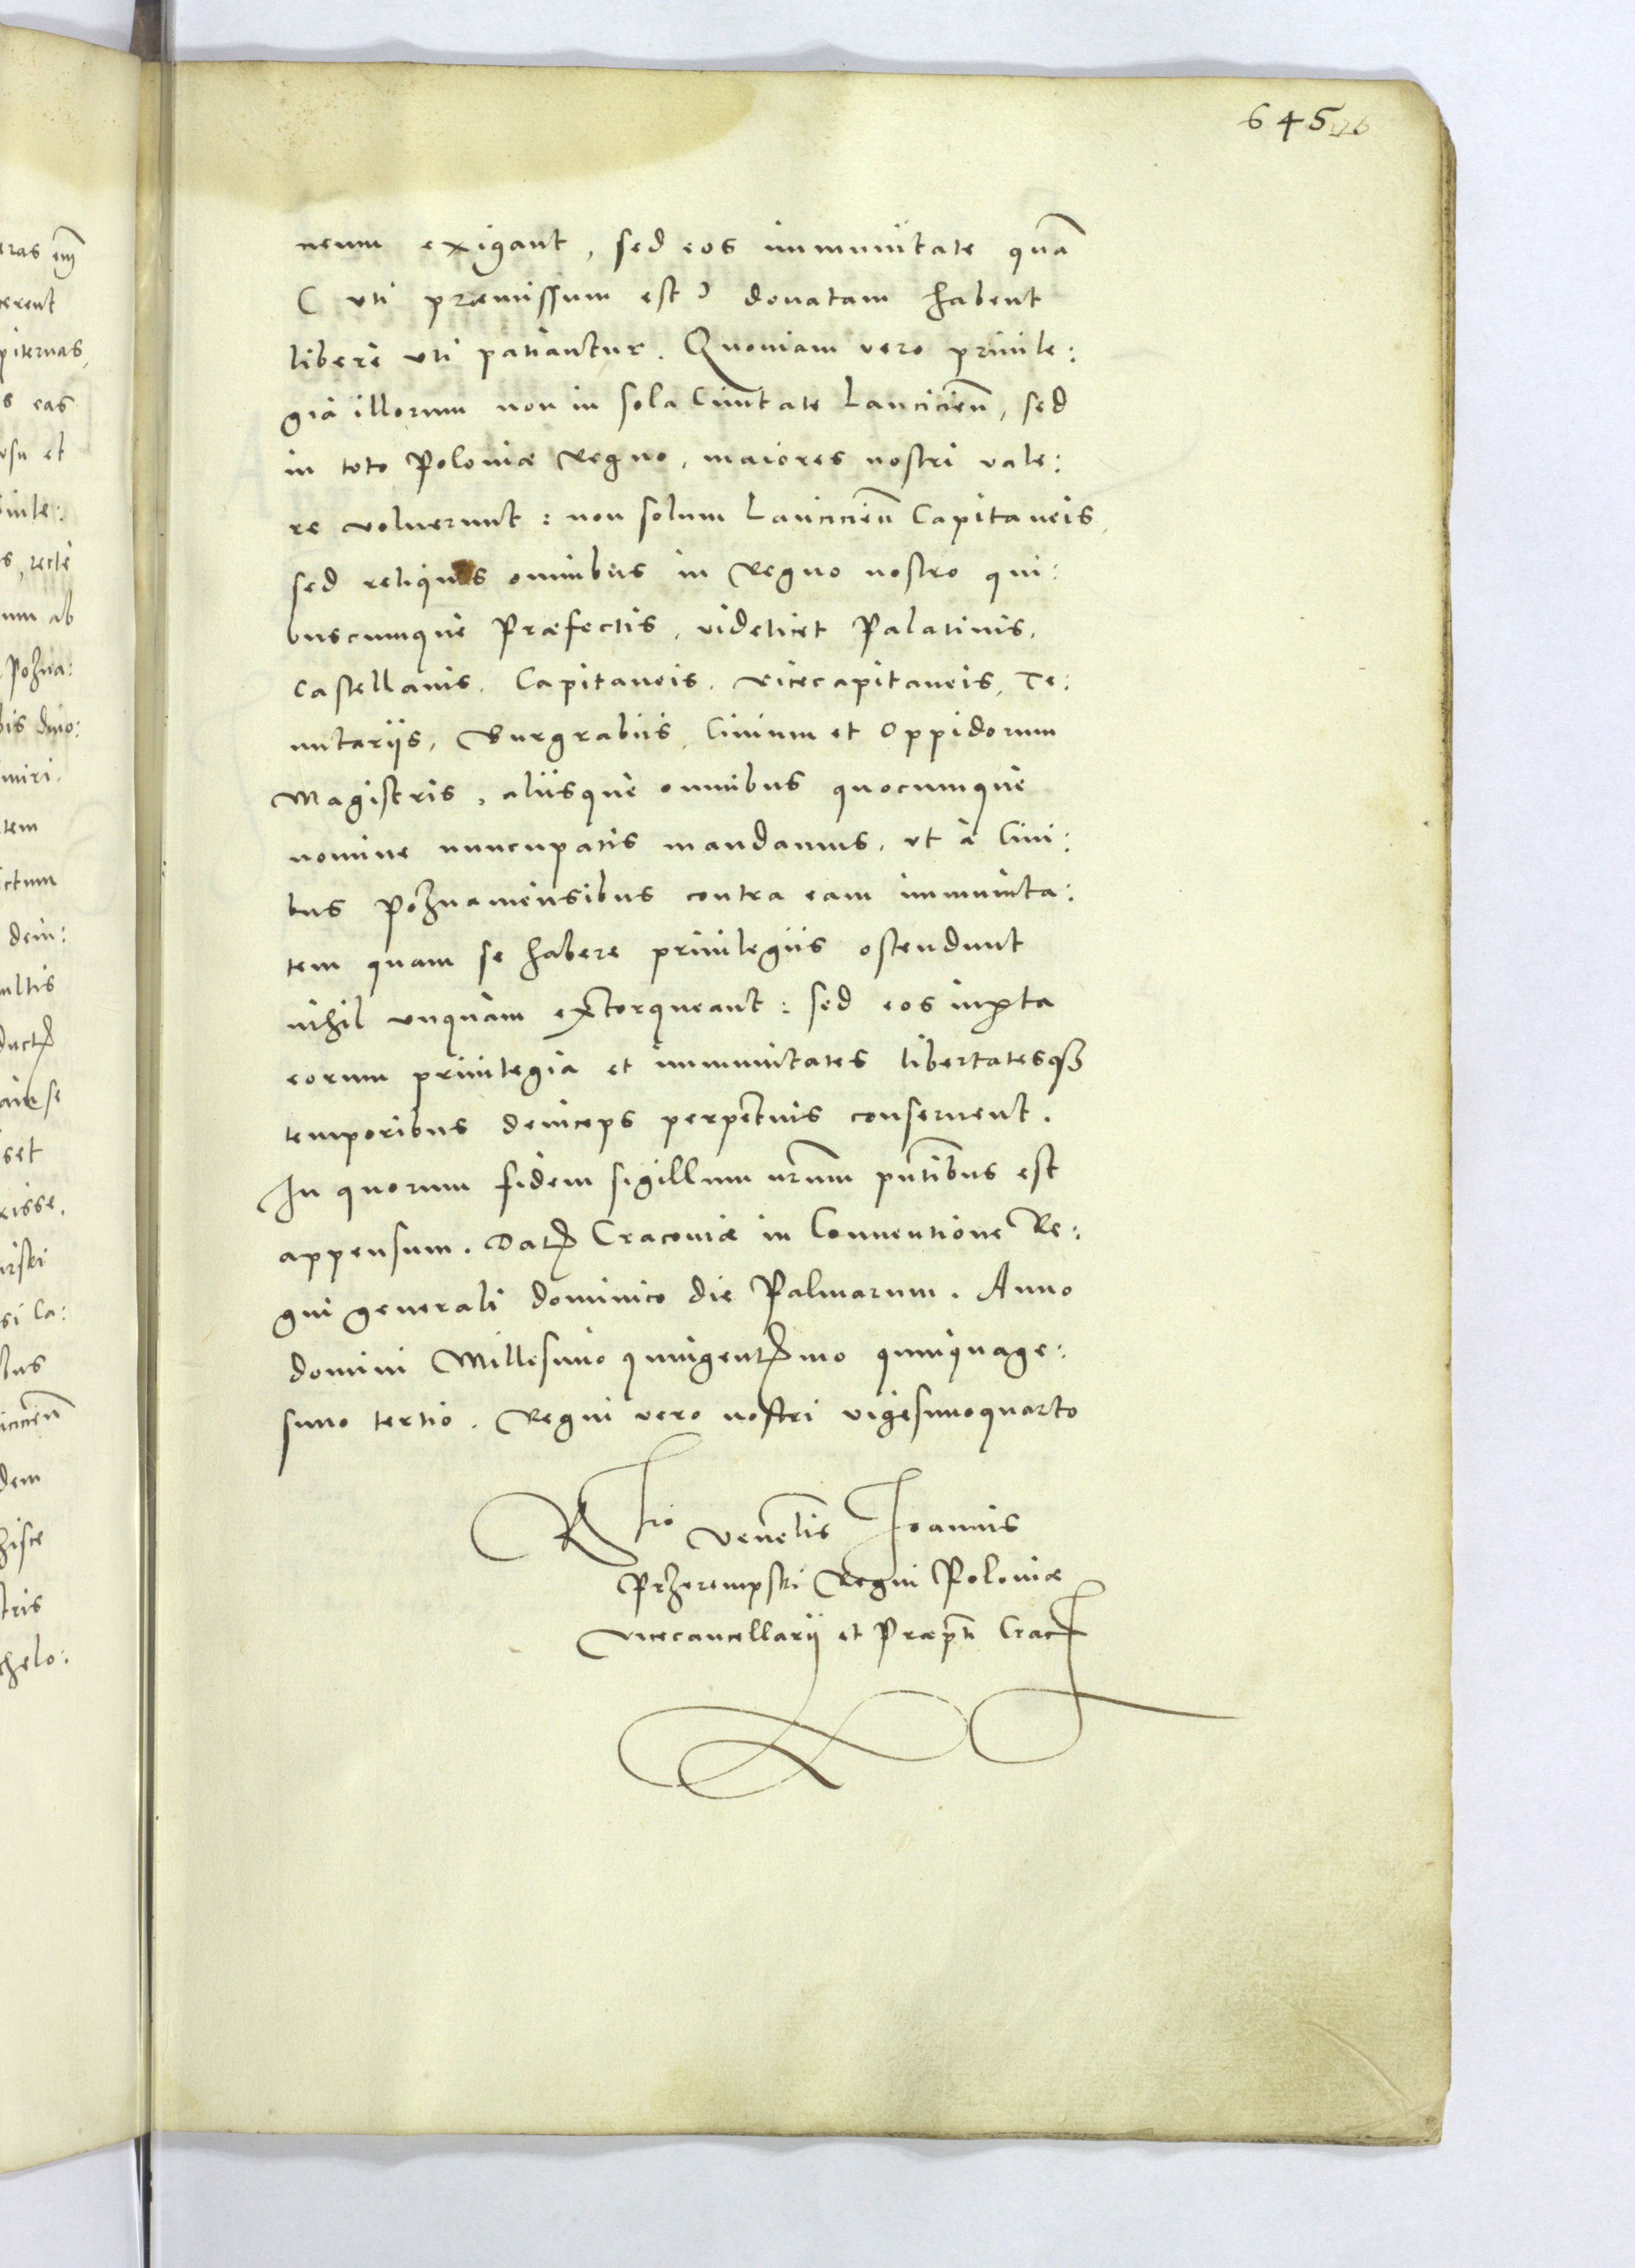 645
neum exigant, sed eos immunitate quā
( uti præmissum est ) donatam habent
liberè uti patiantur. Quoniam vero privile:
gia illorum non in sola Civitate Lancicień, sed
in toto Poloniæ Regno, maiores nostri vale:
re voluerunt : non solum Lancicień Capitaneis,
sed reliquis omnibus in Regno nostro qui:
buscumque Præfectis, videlicet Palatinis,
Castellanis, Capitaneis, Vicecapitaneis, Te:
nutariis, Burgrabiis, Civium et Oppidorum
Magistris, aliisque omnibus quocumque
nomine nuncupatis mandamus, ut à Civi:
bus Poznaniensibus contra eam immunita:
tem quam se habere privilegiis ostendunt
nihil unquam extorqueant : sed eos iuxta
eorum privilegia et immunitates libertatesq3
temporibus deinceps perpetuis conservent.
In quorum fidem sigillum nrūm pntibus est
appensum. Dat Cracoviæ in Conventione Re:
gni generali dominico die Palmarum. Anno
domini Millesimo quingentmo quinquage:
simo tertio. Regni vero nostri vigesimoquarto
Rtio Venelis Joannis
Przerempski Regni Poloniæ
Vicecancellarij et Præpti Crac